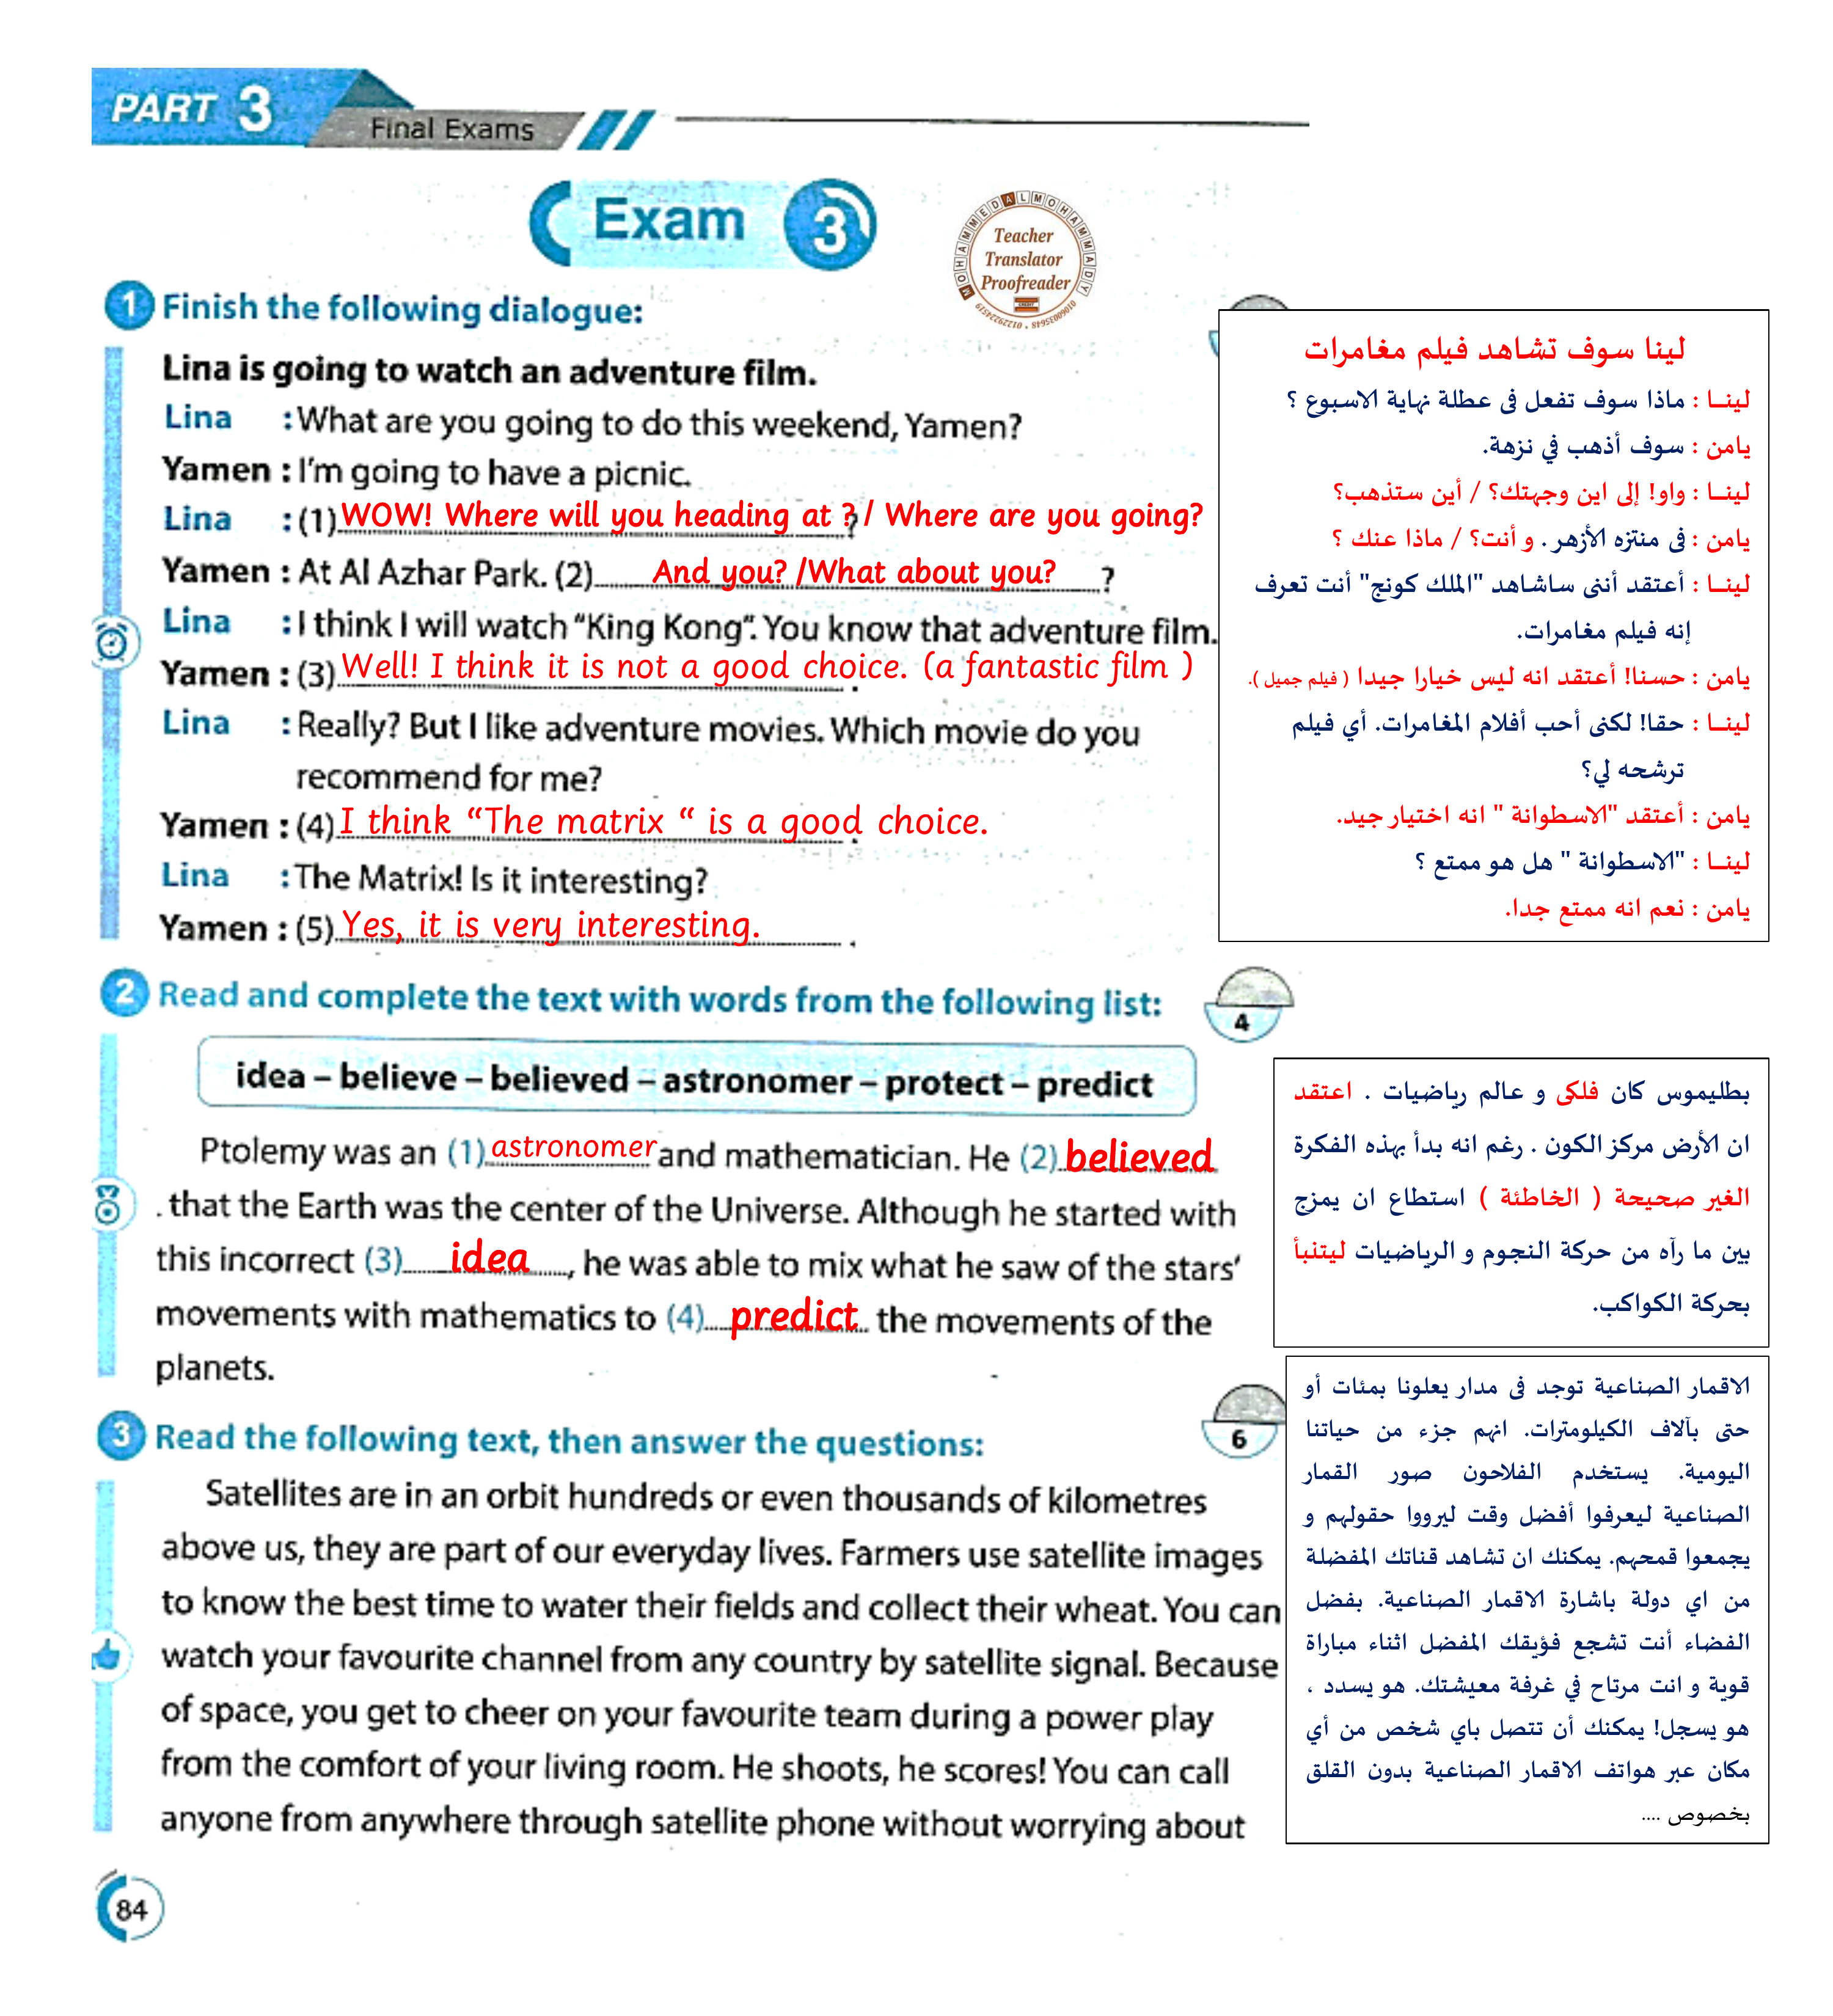 PART 3
Final Exams
Exam 3
MOHAMMED ALMOHAMMADY
Teacher
Translator
Proofreader
01060035648 • 01229224519
1 Finish the following dialogue:
Lina is going to watch an adventure film.
Lina : What are you going to do this weekend, Yamen?
Yamen : I'm going to have a picnic.
Lina : (1) WOW! Where will you heading at ? / Where are you going?
Yamen : At Al Azhar Park. (2) And you? /What about you? ?
Lina : I think I will watch "King Kong". You know that adventure film.
Yamen : (3) Well! I think it is not a good choice. (a fantastic film )
Lina : Really? But I like adventure movies. Which movie do you
recommend for me?
Yamen : (4) I think “The matrix “ is a good choice.
Lina : The Matrix! Is it interesting?
Yamen : (5) Yes, it is very interesting.
لينا سوف تشاهد فيلم مغامرات
لينـا : ماذا سوف تفعل فى عطلة نهاية الاسبوع ؟
يامن : سوف أذهب في نزهة.
لينـا : واو! إلى اين وجهتك؟ / أين ستذهب؟
يامن : فى منتزه الأزهر . و أنت؟ / ماذا عنك ؟
لينـا : أعتقد أننى ساشاهد "الملك كونج" أنت تعرف
إنه فيلم مغامرات.
يامن : حسنا! أعتقد انه ليس خيارا جيدا ( فيلم جميل ).
لينـا : حقا! لكنى أحب أفلام المغامرات. أي فيلم
ترشحه لي؟
يامن : أعتقد "الاسطوانة " انه اختيار جيد.
لينـا : "الاسطوانة " هل هو ممتع ؟
يامن : نعم انه ممتع جدا.
2 Read and complete the text with words from the following list:
4
idea – believe – believed – astronomer – protect – predict
Ptolemy was an (1) astronomer and mathematician. He (2) believed
. that the Earth was the center of the Universe. Although he started with
this incorrect (3) idea , he was able to mix what he saw of the stars'
movements with mathematics to (4) predict the movements of the
planets.
بطليموس كان فلكى و عالم رياضيات . اعتقد
ان الأرض مركز الكون . رغم انه بدأ بهذه الفكرة
الغير صحيحة ( الخاطئة ) استطاع ان يمزج
بين ما رآه من حركة النجوم و الرياضيات ليتنبأ
بحركة الكواكب.
3 Read the following text, then answer the questions:
6
Satellites are in an orbit hundreds or even thousands of kilometres
above us, they are part of our everyday lives. Farmers use satellite images
to know the best time to water their fields and collect their wheat. You can
watch your favourite channel from any country by satellite signal. Because
of space, you get to cheer on your favourite team during a power play
from the comfort of your living room. He shoots, he scores! You can call
anyone from anywhere through satellite phone without worrying about
الاقمار الصناعية توجد فى مدار يعلونا بمئات أو
حتى بآلاف الكيلومترات. انهم جزء من حياتنا
اليومية. يستخدم الفلاحون صور القمار
الصناعية ليعرفوا أفضل وقت ليرووا حقولهم و
يجمعوا قمحهم. يمكنك ان تشاهد قناتك المفضلة
من اي دولة باشارة الاقمار الصناعية. بفضل
الفضاء أنت تشجع فؤيقك المفضل اثناء مباراة
قوية و انت مرتاح في غرفة معيشتك. هو يسدد ،
هو يسجل! يمكنك أن تتصل باي شخص من أي
مكان عبر هواتف الاقمار الصناعية بدون القلق
بخصوص ....
84